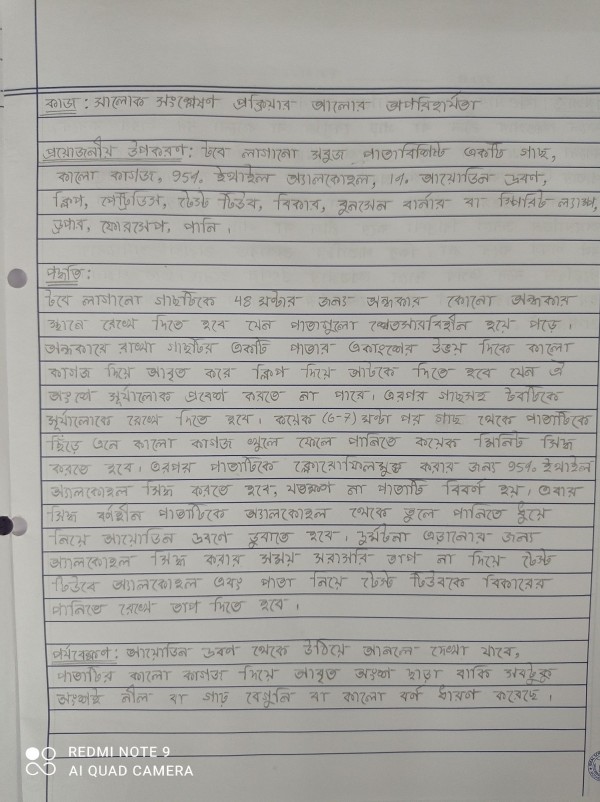 কাজ : আলোক সংশ্লেষণ প্রক্রিয়ার আলোর অপরিহার্যতা
প্রয়োজনীয় উপকরণ : টবে লাগানো সবুজ পাতাবিশিষ্ট একটি গাছ,
কালো কাগজ, 95% ইথাইল অ্যালকোহল, 1% আয়োডিন দ্রবণ,
ক্লিপ, পেট্রিডিস, টেস্ট টিউব, বিকার, বুনসেন বার্নার বা স্পিরিট ল্যাম্প,
ড্রপার, ফোরসেপ, পানি ।
পদ্ধতি :
টবে লাগানো গাছটিকে 48 ঘন্টার জন্য অন্ধকার কোনো অন্ধকার
স্থানে রেখে দিতে হবে যেন পাতাগুলো শ্বেতসারবিহীন হয়ে পড়ে ।
অন্ধকারে রাখা গাছটির একটি পাতার একাংশের উভয় দিকে কালো
কাগজ দিয়ে আবৃত করে ক্লিপ দিয়ে আটকে দিতে হবে যেন ঐ
অংশে সূর্যালোক প্রবেশ করতে না পারে । এরপর গাছসহ টবটিকে
সূর্যালোকে রেখে দিতে হবে । কয়েক (6-7) ঘন্টা পর গাছ থেকে পাতাটিকে
ছিঁড়ে এনে কালো কাগজ খুলে ফেলে পানিতে কয়েক মিনিট সিদ্ধ
করতে হবে । এরপর পাতাটিকে ক্লোরোফিলমুক্ত করার জন্য 95% ইথাইল
অ্যালকোহল সিদ্ধ করতে হবে, যতক্ষণ না পাতাটি বিবর্ণ হয় । এবার
সিদ্ধ বর্ণহীন পাতাটিকে অ্যালকোহল থেকে তুলে পানিতে ধুয়ে
নিয়ে আয়োডিন দ্রবণে ডুবাতে হবে । দুর্ঘটনা এড়ানোর জন্য
অ্যালকোহল সিদ্ধ করার সময় সরাসরি তাপ না দিয়ে টেস্ট
টিউবে অ্যালকোহল এবং পাতা নিয়ে টেস্ট টিউবকে বিকারের
পানিতে রেখে তাপ দিতে হবে ।
পর্যবেক্ষণ : আয়োডিন দ্রবণ থেকে উঠিয়ে আনলে দেখা যাবে,
পাতাটির কালো কাগজ দিয়ে আবৃত অংশ ছাড়া বাকি সবটুকু
অংশই নীল বা গাঢ় বেগুনি বা কালো বর্ণ ধারণ করেছে ।
REDMI NOTE 9
AI QUAD CAMERA